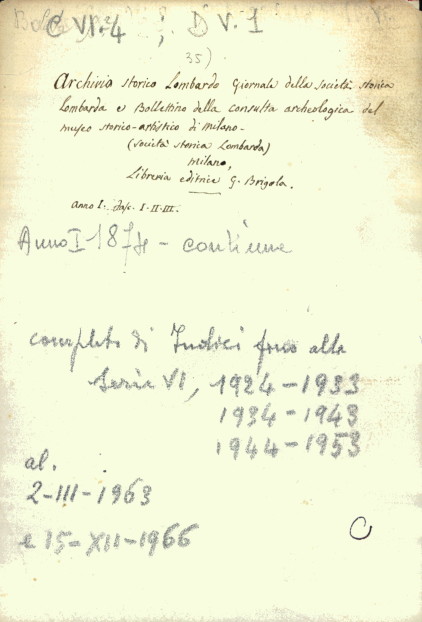 C VI. 4 ; D V. 1
35)
Archivio storico Lombardo Giornale della società storica
Lombarda e Bollettino della consulta archeologica del
museo storico-artistico di Milano-
(società storica Lombarda)
Milano,
Libreria editrice G. Brigola.
Anno I. Fasc. I-II-III.
Anno I 1874 - continua
completo di Indici fino alla
Serie VI, 1924-1933
1934-1943
1944-1953
al.
2-III-1963
e 15-XII-1966
C